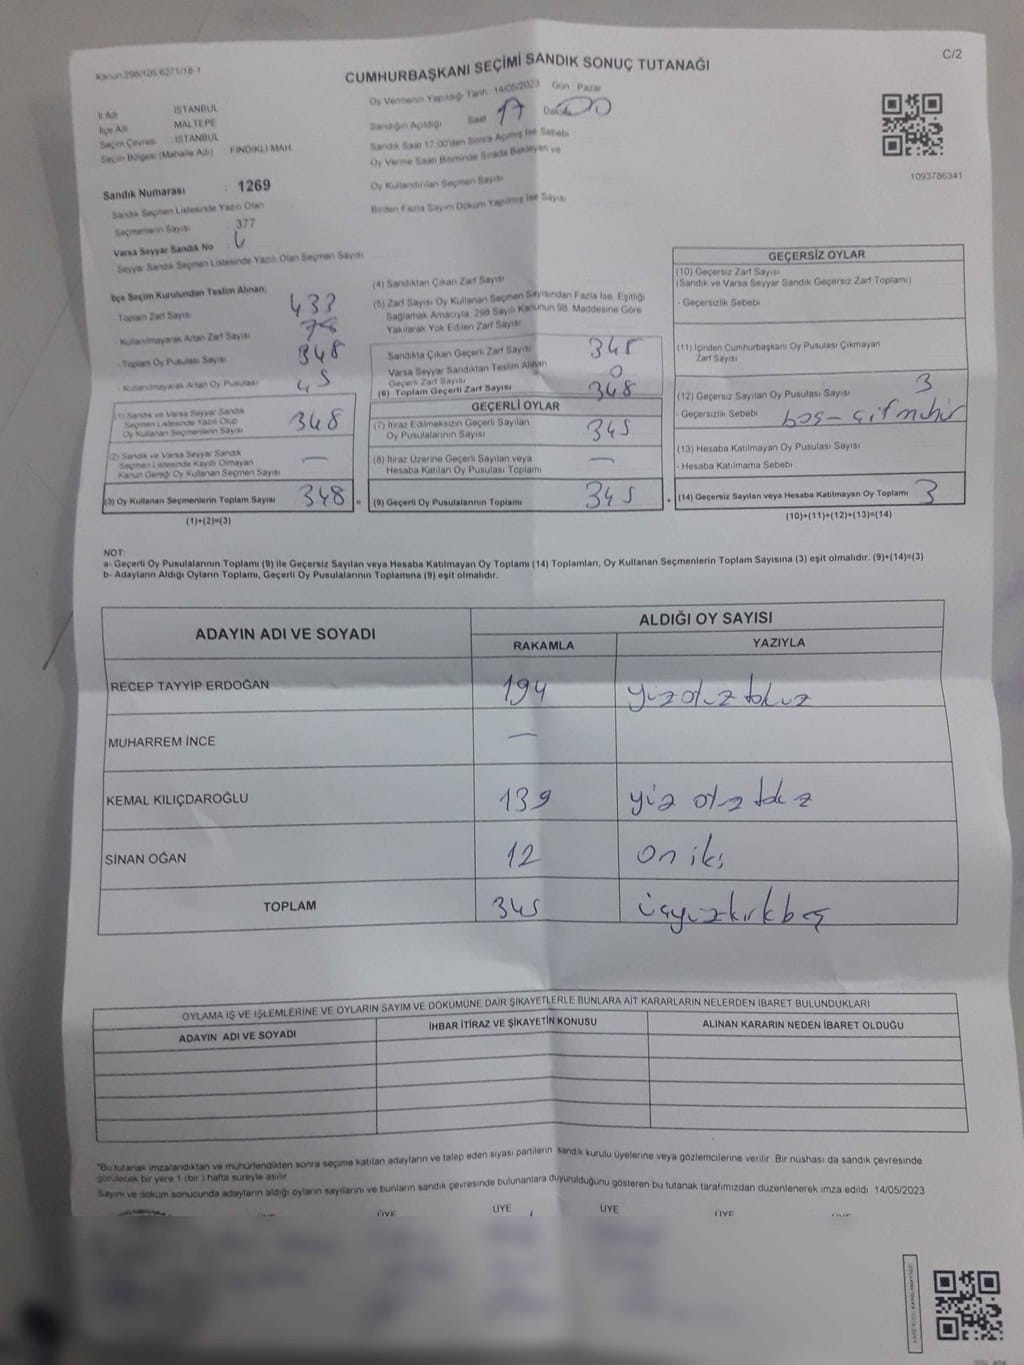 Kanun:298/105,6271/18-1
C/2
CUMHURBAŞKANI SEÇİMİ SANDIK SONUÇ TUTANAĞI
İl Adı : İSTANBUL
İlçe Adı : MALTEPE
Seçim Çevresi : İSTANBUL
Seçim Bölgesi (Mahalle Adı) FINDIKLI MAH.
Oy Vermenin Yapıldığı Tarih :14/05/2023 Gün : Pazar
Sandığın Açıldığı Saat 17 Dakika 00
Sandık Saat 17.00'den Sonra Açılmış İse Sebebi
Oy Verme Saati Bitiminde Sırada Bekleyen ve
Oy Kullandırılan Seçmen Sayısı
Birden Fazla Sayım Döküm Yapılmış İse Sayısı
1093786341
Sandık Numarası : 1269
Sandık Seçmen Listesinde Yazılı Olan
Seçmenlerin Sayısı : 377
Varsa Seyyar Sandık No :
Seyyar Sandık Seçmen Listesinde Yazılı Olan Seçmen Sayısı
İlçe Seçim Kurulundan Teslim Alınan;
Toplam Zarf Sayısı 433
- Kullanılmayarak Artan Zarf Sayısı
- Toplam Oy Pusulası Sayısı 348
- Kullanılmayarak Artan Oy Pusulası 45
(1) Sandık ve Varsa Seyyar Sandık
Seçmen Listesinde Yazılı Olup
Oy Kullanan Seçmenlerin Sayısı 348
(2) Sandık ve Varsa Seyyar Sandık
Seçmen Listesinde Kayıtlı Olmayan
Kanun Gereği Oy Kullanan Seçmen Sayısı —
(3) Oy Kullanan Seçmenlerin Toplam Sayısı 348 =
(1)+(2)=(3)
(4) Sandıktan Çıkan Zarf Sayısı
(5) Zarf Sayısı Oy Kullanan Seçmen Sayısından Fazla İse, Eşitliği
Sağlamak Amacıyla, 298 Sayılı Kanunun 98. Maddesine Göre
Yakılarak Yok Edilen Zarf Sayısı
Sandıkta Çıkan Geçerli Zarf Sayısı 348
Varsa Seyyar Sandıktan Teslim Alınan
Geçerli Zarf Sayısı 0
(6) Toplam Geçerli Zarf Sayısı 348
GEÇERLİ OYLAR
(7) İtiraz Edilmeksizin Geçerli Sayılan
Oy Pusulalarının Sayısı 345
(8) İtiraz Üzerine Geçerli Sayılan veya
Hesaba Katılan Oy Pusulası Toplamı —
(9) Geçerli Oy Pusulalarının Toplamı 345 +
GEÇERSİZ OYLAR
(10) Geçersiz Zarf Sayısı
(Sandık ve Varsa Seyyar Sandık Geçersiz Zarf Toplamı)
- Geçersizlik Sebebi
(11) İçinden Cumhurbaşkanı Oy Pusulası Çıkmayan
Zarf Sayısı
(12) Geçersiz Sayılan Oy Pusulası Sayısı 3
- Geçersizlik Sebebi boş - çift mühür
(13) Hesaba Katılmayan Oy Pusulası Sayısı
- Hesaba Katılmama Sebebi
(14) Geçersiz Sayılan veya Hesaba Katılmayan Oy Toplamı 3
(10)+(11)+(12)+(13)=(14)
NOT:
a- Geçerli Oy Pusulalarının Toplamı (9) ile Geçersiz Sayılan veya Hesaba Katılmayan Oy Toplamı (14) Toplamları, Oy Kullanan Seçmenlerin Toplam Sayısına (3) eşit olmalıdır. (9)+(14)=(3)
b- Adayların Aldığı Oyların Toplamı, Geçerli Oy Pusulalarının Toplamına (9) eşit olmalıdır.
ADAYIN ADI VE SOYADI
ALDIĞI OY SAYISI
RAKAMLA YAZIYLA
RECEP TAYYİP ERDOĞAN 194 yüz otuz dokuz
MUHARREM İNCE —
KEMAL KILIÇDAROĞLU 139 yüz otuz dokuz
SİNAN OĞAN 12 on iki
TOPLAM 345 üçyüzkırkbeş
OYLAMA İŞ VE İŞLEMLERİNE VE OYLARIN SAYIM VE DÖKÜMÜNE DAİR ŞİKAYETLERLE BUNLARA AİT KARARLARIN NELERDEN İBARET BULUNDUKLARI
ADAYIN ADI VE SOYADI İHBAR İTİRAZ VE ŞİKAYETİN KONUSU ALINAN KARARIN NEDEN İBARET OLDUĞU
*Bu tutanak imzalandıktan ve mühürlendikten sonra seçime katılan adayların ve talep eden siyasi partilerin sandık kurulu üyelerine veya gözlemcilerine verilir. Bir nüshası da sandık çevresinde
görülecek bir yere 1 (bir ) hafta süreyle asılır.
Sayım ve döküm sonucunda adayların aldığı oyların sayılarını ve bunların sandık çevresinde bulunanlara duyurulduğunu gösteren bu tutanak tarafımızdan düzenlenerek imza edildi. 14/05/2023
ÜYE ÜYE ÜYE ÜYE